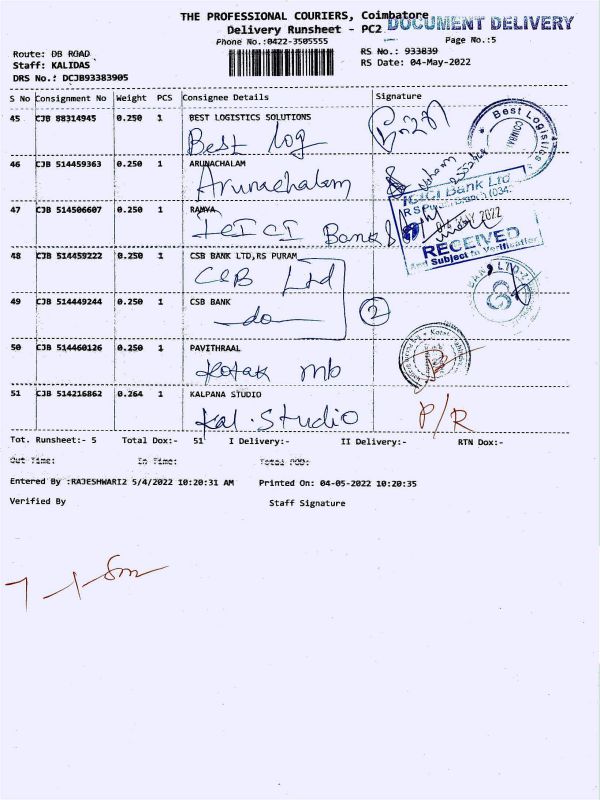 THE PROFESSIONAL COURIERS, Coimbatore
Delivery Runsheet - PC2
DOCUMENT DELIVERY
Phone No.:0422-3505555
Page No.:5
Route: DB ROAD
RS No.: 933839
Staff: KALIDAS
RS Date: 04-May-2022
DRS No.: DCJB93383905
S No Consignment No Weight PCS Consignee Details Signature
45 CJB 88314945 0.250 1 BEST LOGISTICS SOLUTIONS
Best log
Best Logistics
46 CJB 514459363 0.250 1 ARUNACHALAM
Arunachalam
ICICI Bank Ltd
47 CJB 514506607 0.250 1 RAMYA
ICICI Bank
MAY 2022
RECEIVED
And Subject to Verification
48 CJB 514459222 0.250 1 CSB BANK LTD,RS PURAM
CSB Ltd
49 CJB 514449244 0.250 1 CSB BANK
-do-
2
50 CJB 514460126 0.250 1 PAVITHRAAL
Kotak mb
51 CJB 514216862 0.264 1 KALPANA STUDIO
Kal.Studio
P/R
Tot. Runsheet:- 5 Total Dox:- 51 I Delivery:- II Delivery:- RTN Dox:-
Out Time: In Time: Total POD:
Entered By :RAJESHWARI2 5/4/2022 10:20:31 AM Printed On: 04-05-2022 10:20:35
Verified By Staff Signature